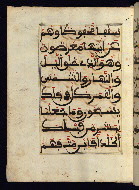 سقفا محفوظا وهم
عن ءايتها معرضون
وهو الذي خلق اليل
والنهار والشمس
والقمر كل في فلك
يسبحون وما جعلنا
لبشر من قبلك
الخلد أفإين مت فهم